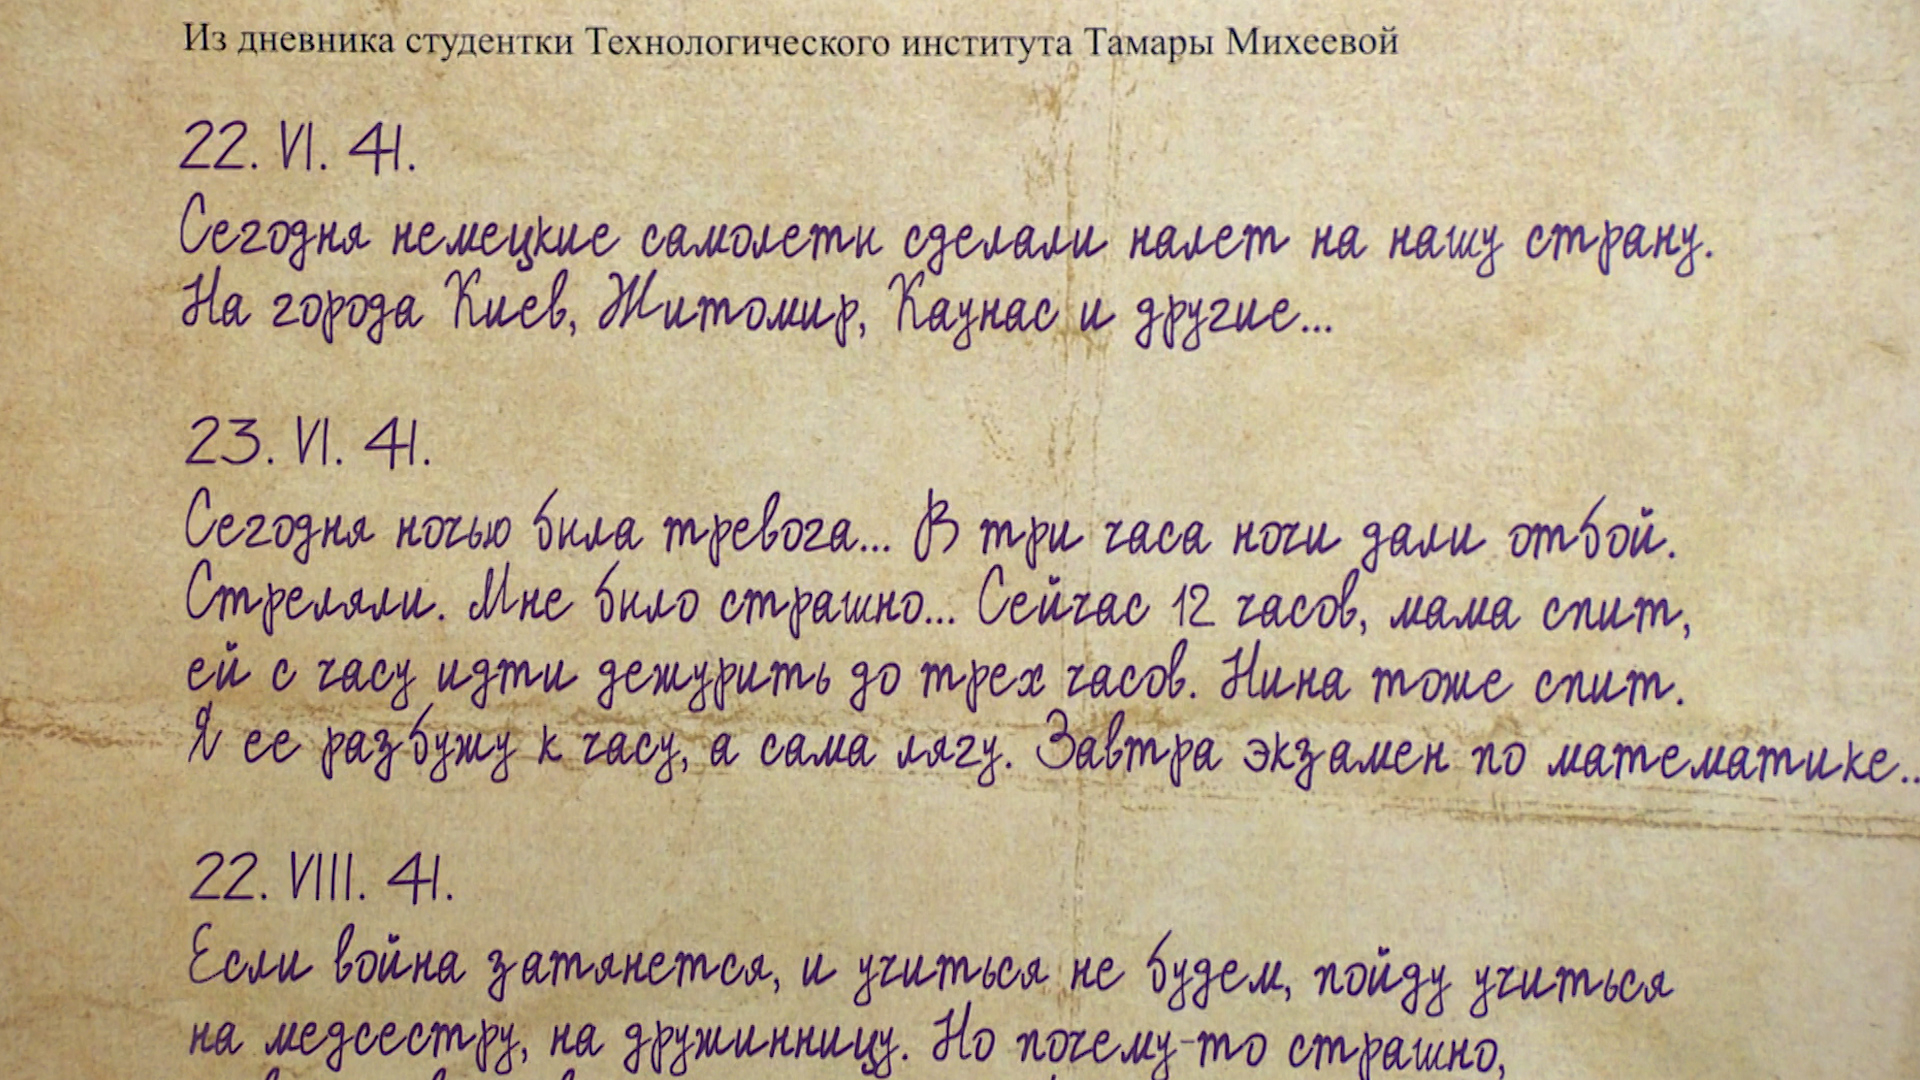 Из дневника студентки Технологического института Тамары Михеевой
22. VI. 41.
Сегодня немецкие самолеты сделали налет на нашу страну.
На города Киев, Житомир, Каунас и другие...
23. VI. 41.
Сегодня ночью была тревога... В три часа ночи дали отбой.
Стреляли. Мне было страшно... Сейчас 12 часов, мама спит,
ей с часу идти дежурить до трех часов. Нина тоже спит.
Я ее разбужу к часу, а сама лягу. Завтра экзамен по математике..
22. VIII. 41.
Если война затянется, и учиться не будем, пойду учиться
на медсестру, на дружинницу. Но почему-то страшно,